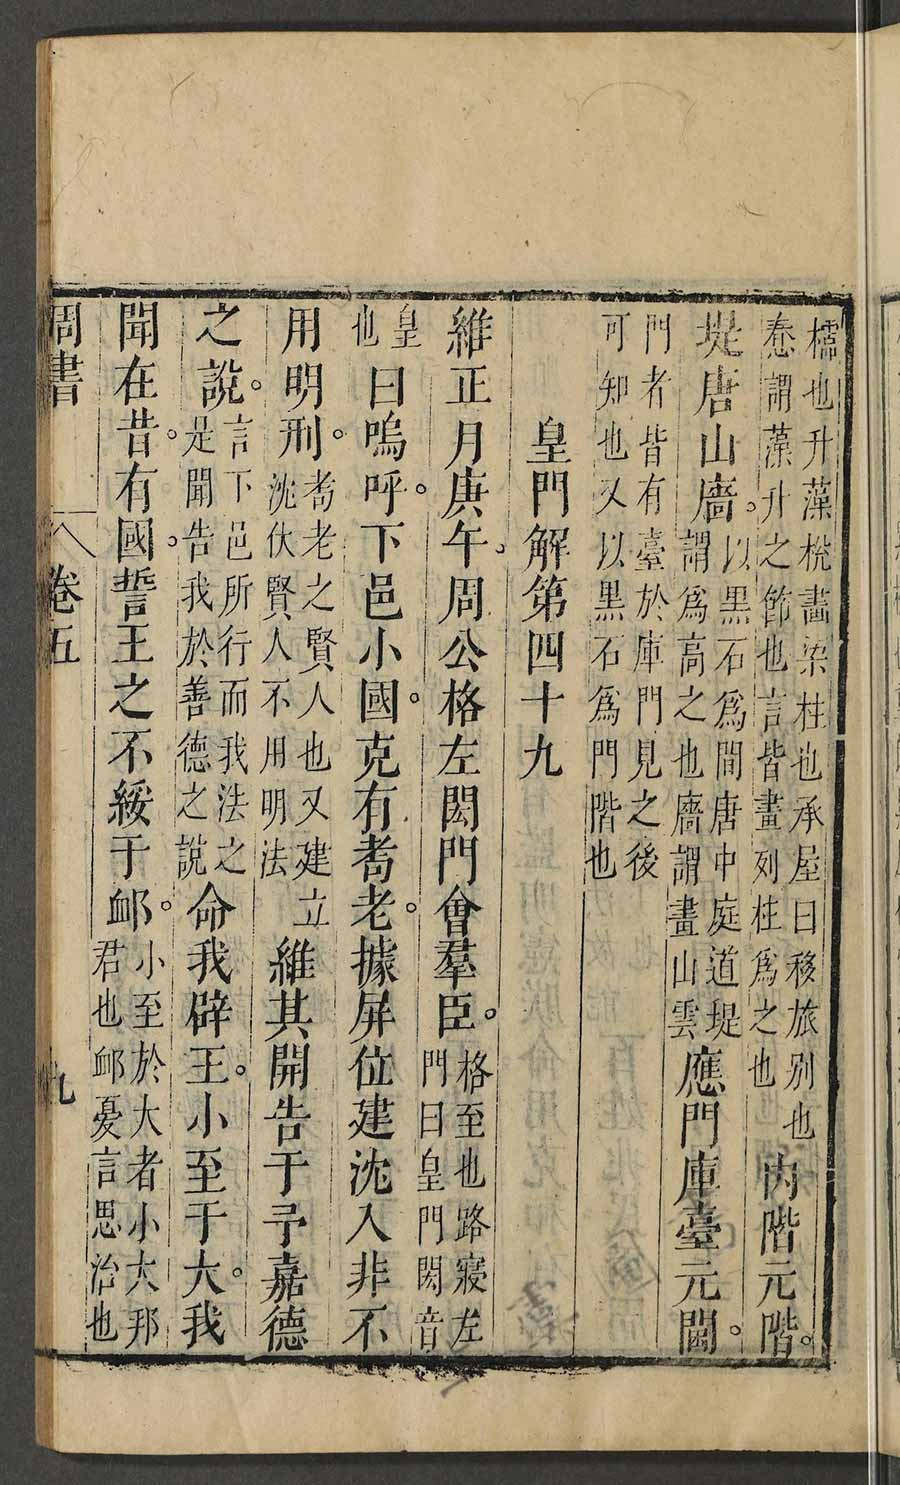 檽也升藻梲畫梁柱也承屋曰移旅别也
惷謂藻升之節也言皆畫列柱爲之也
内階元階。
堤唐山廧。
以黒石爲間唐中庭道堤
謂爲高之也廧謂畫山雲
應門庫臺元閫。
門者皆有臺於庫門見之後
可知也又以黒石爲門階也
皇門解第四十九
維正月庚午。周公格左閎門會羣臣。
格至也路寢左
門曰皇門閎音
皇
也
曰嗚呼。下邑小國。克有耇老。據屏位建沈入非不
用明刑。
耇老之賢人也又建立
沈伏賢人不用明法
維其開告于予嘉德
之說。
言下邑所行而我法之
是聞告我於善德之說
命我辟王。小至于大。我
聞在昔。有國。誓王之不綏于卹。
小至於大者小大邦
君也卹憂言思治也
周書 卷五 九